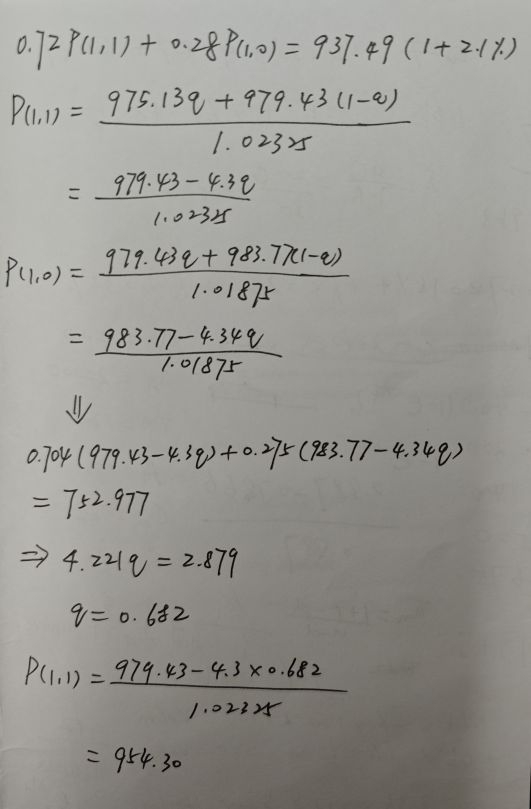 0.72P(1,1) + 0.28P(1,0) = 937.49 (1+2.1%)
P(1,1) = (975.13q + 979.43(1-q)) / 1.02325
= (979.43 - 4.3q) / 1.02325
P(1,0) = (979.43q + 983.77(1-q)) / 1.01875
= (983.77 - 4.34q) / 1.01875
⇓
0.704(979.43-4.3q)+0.275(983.77-4.34q)
= 752.977
⇒ 4.221q = 2.879
q = 0.682
P(1,1) = (979.43 - 4.3 × 0.682) / 1.02325
= 954.30